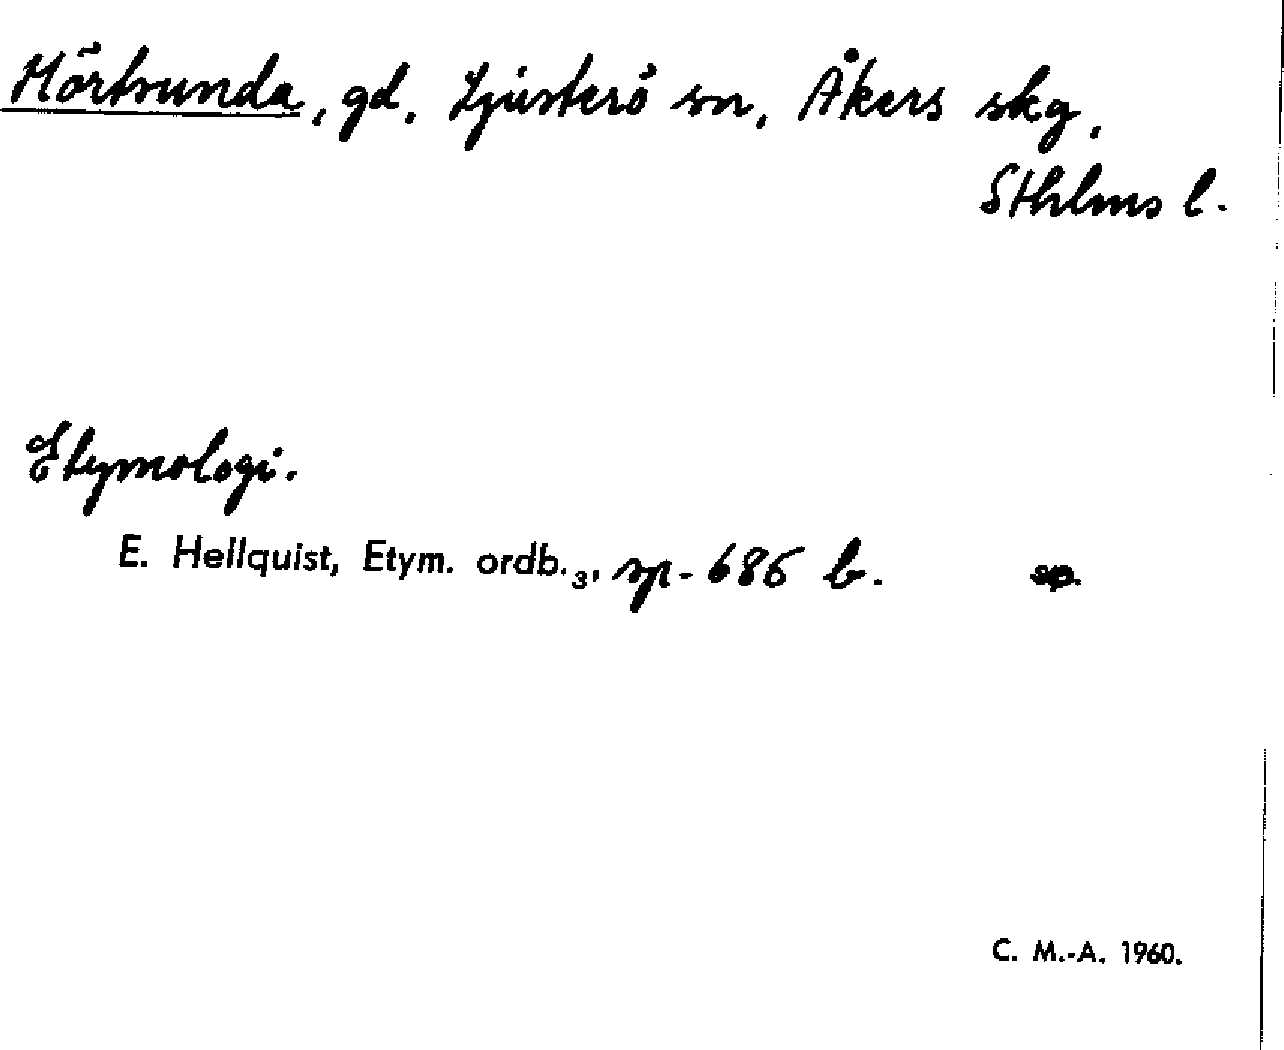 Mörtsunda, gd, Ljusterö sn, Åkers skg,
Sthlms l.
Etymologi.
E. Hellquist, Etym. ordb.₃, sp. 686 b.
C. M.-A. 1960.